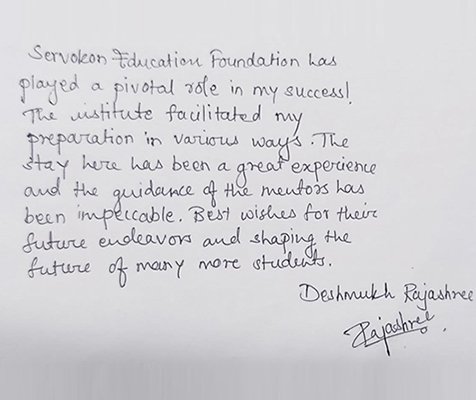 Servokon Education Foundation has
played a pivotal role in my success!
The institute facilitated my
preparation in various ways. The
stay here has been a great experience
and the guidance of the mentors has
been impeccable. Best wishes for their
future endeavors and shaping the
future of many more students.
Deshmukh Rajashree
Rajashree